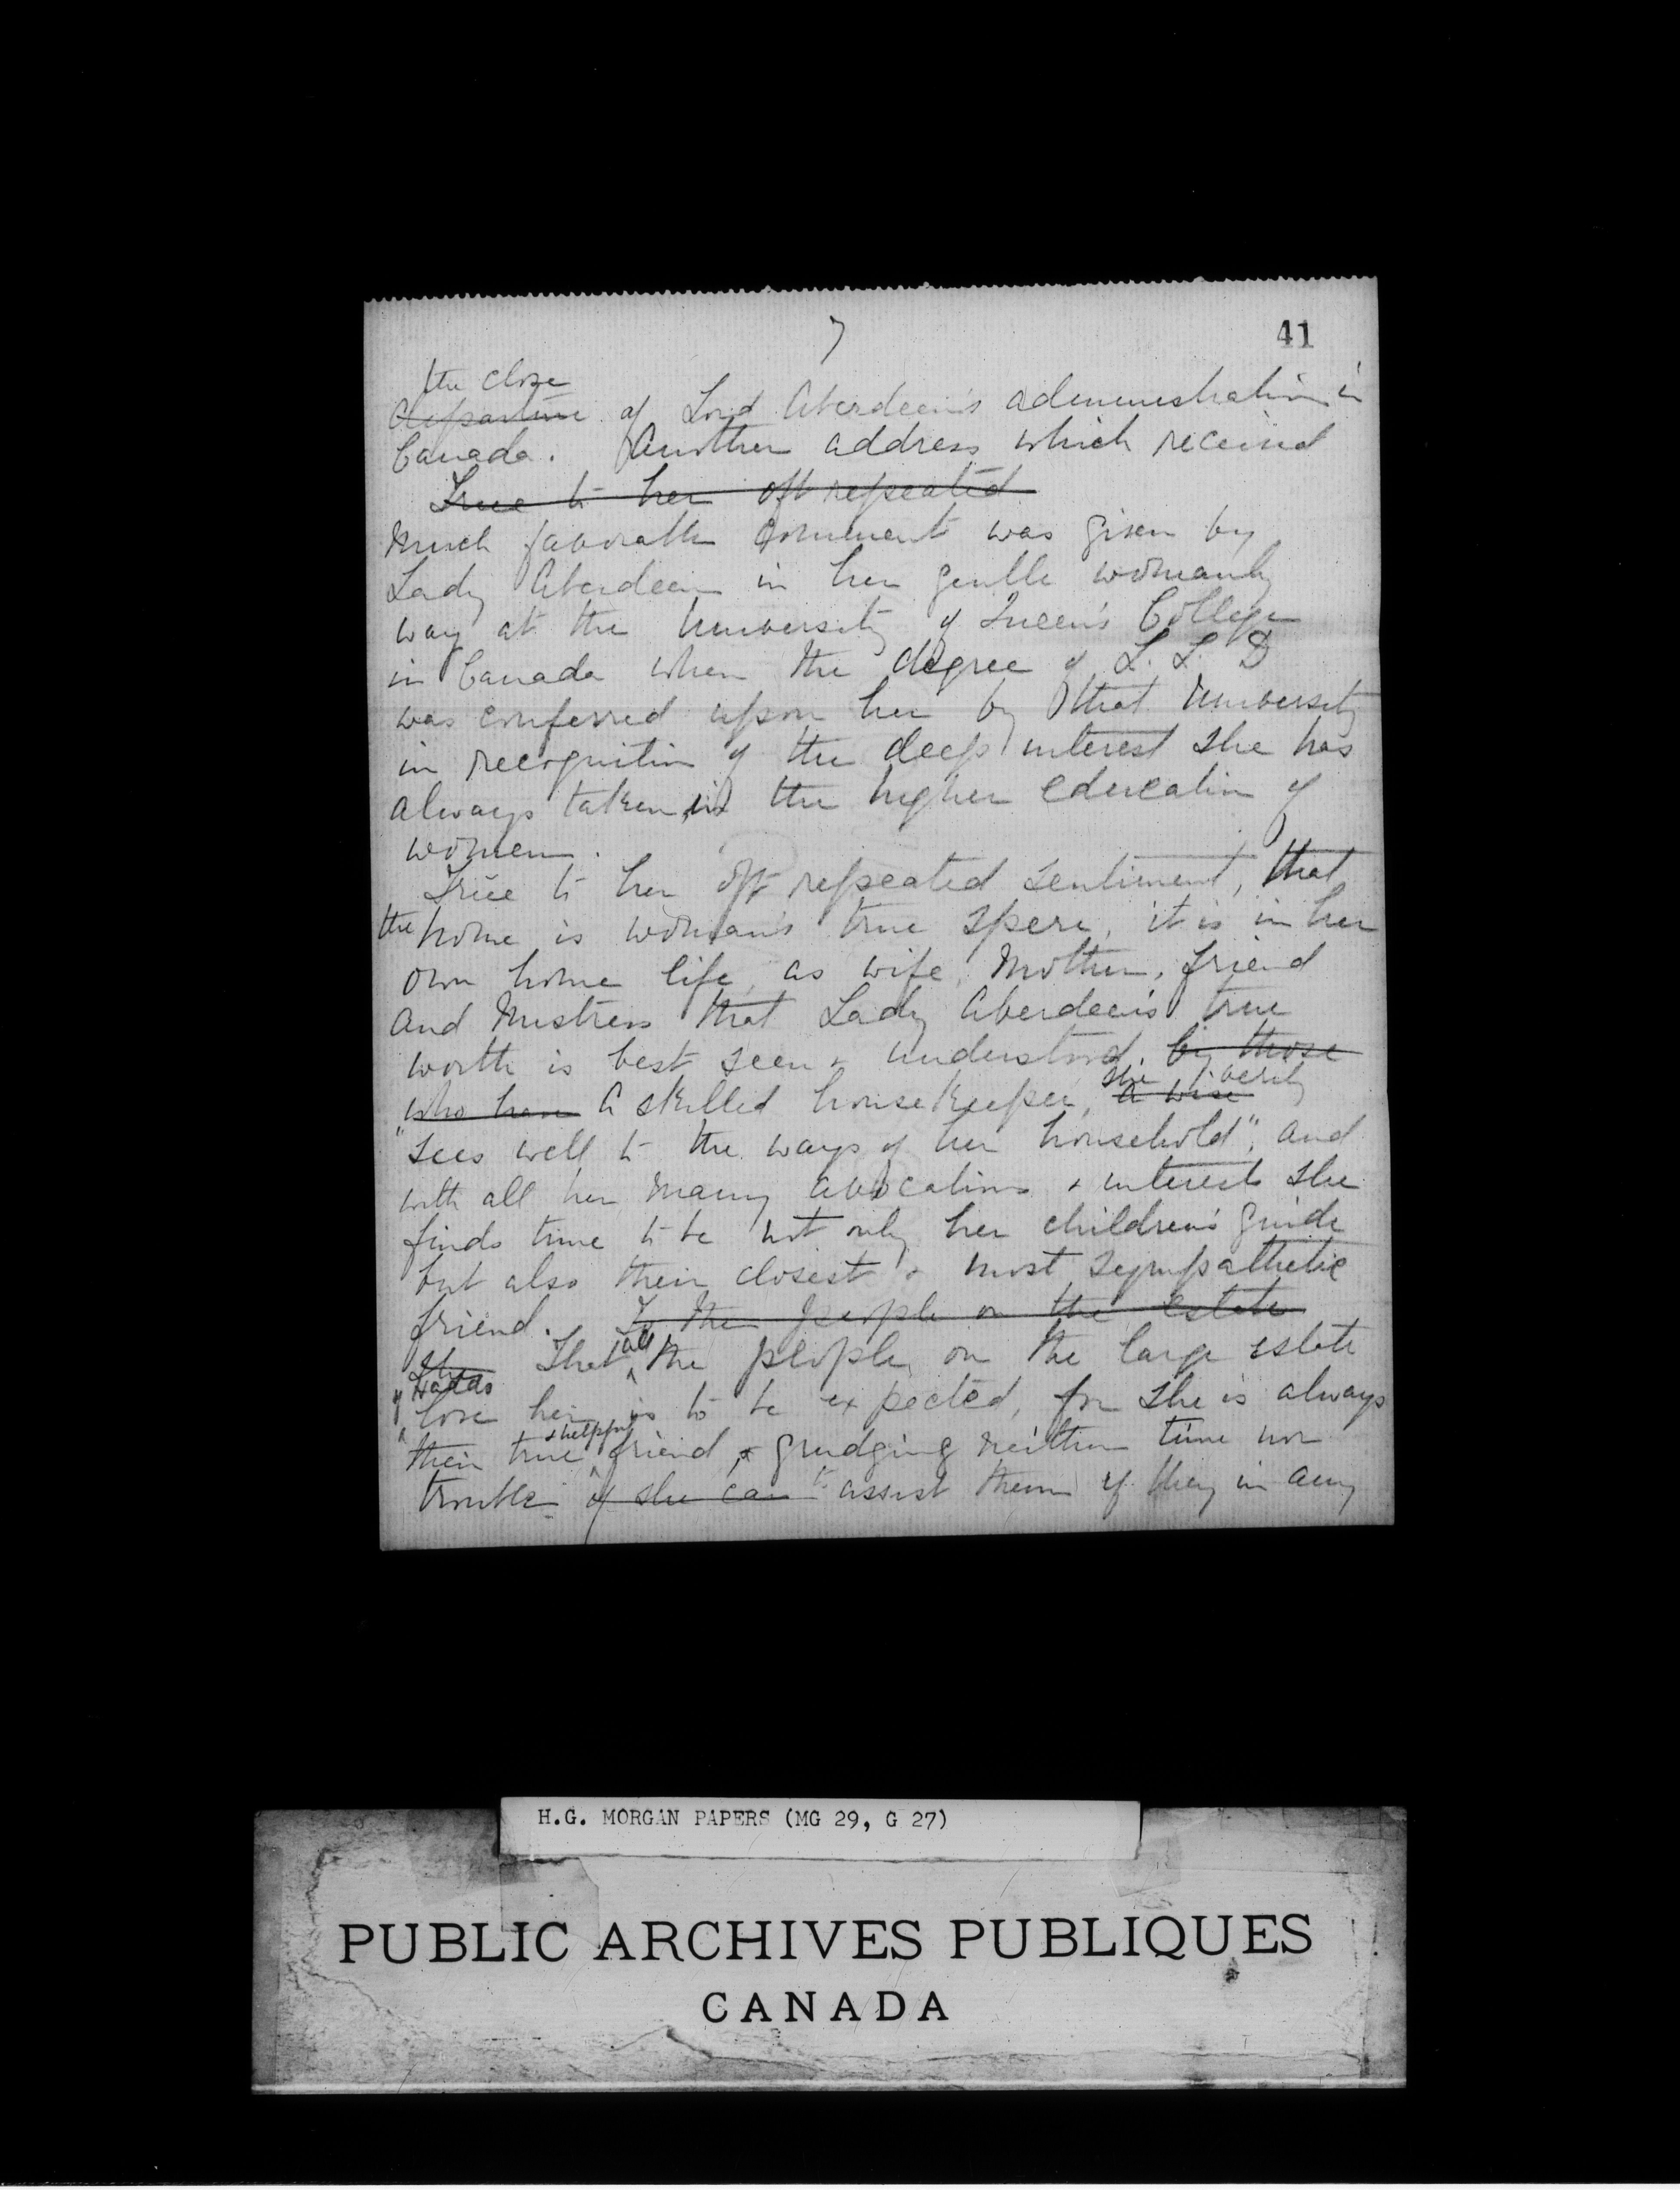 7
41
the close
departure of Lord Aberdeen's administration in
Canada. Another address which received
True to her oft repeated
much favorable comment was given by
Lady Aberdeen in her gentle womanly
way at the University of Queen's College
in Canada when the degree of L. L. D
was conferred upon her by that University
in recognition of the deep interest she has
always taken in the higher education of
women.
True to her oft repeated sentiment, that
the home is woman's true spere, it is in her
own home life, as wife, Mother, friend
and Mistress that Lady Aberdeen's true
worth is best seen & understood. by those
she verily
who have A skilled housekeeper, a wise
"sees well to the ways of her household", and
with all her many avocations & interests she
finds time to be not only her children's guide
but also their closest & most sympathetic
friend. To the people on the estate
She That all the people on the large estate
of Haddo
love her is to be expected, for she is always
& helpful
their true friend, & grudging neither time nor
trouble if she can to assist them if they in any
H.G. MORGAN PAPERS (MG 29, G 27)
PUBLIC ARCHIVES PUBLIQUES
CANADA